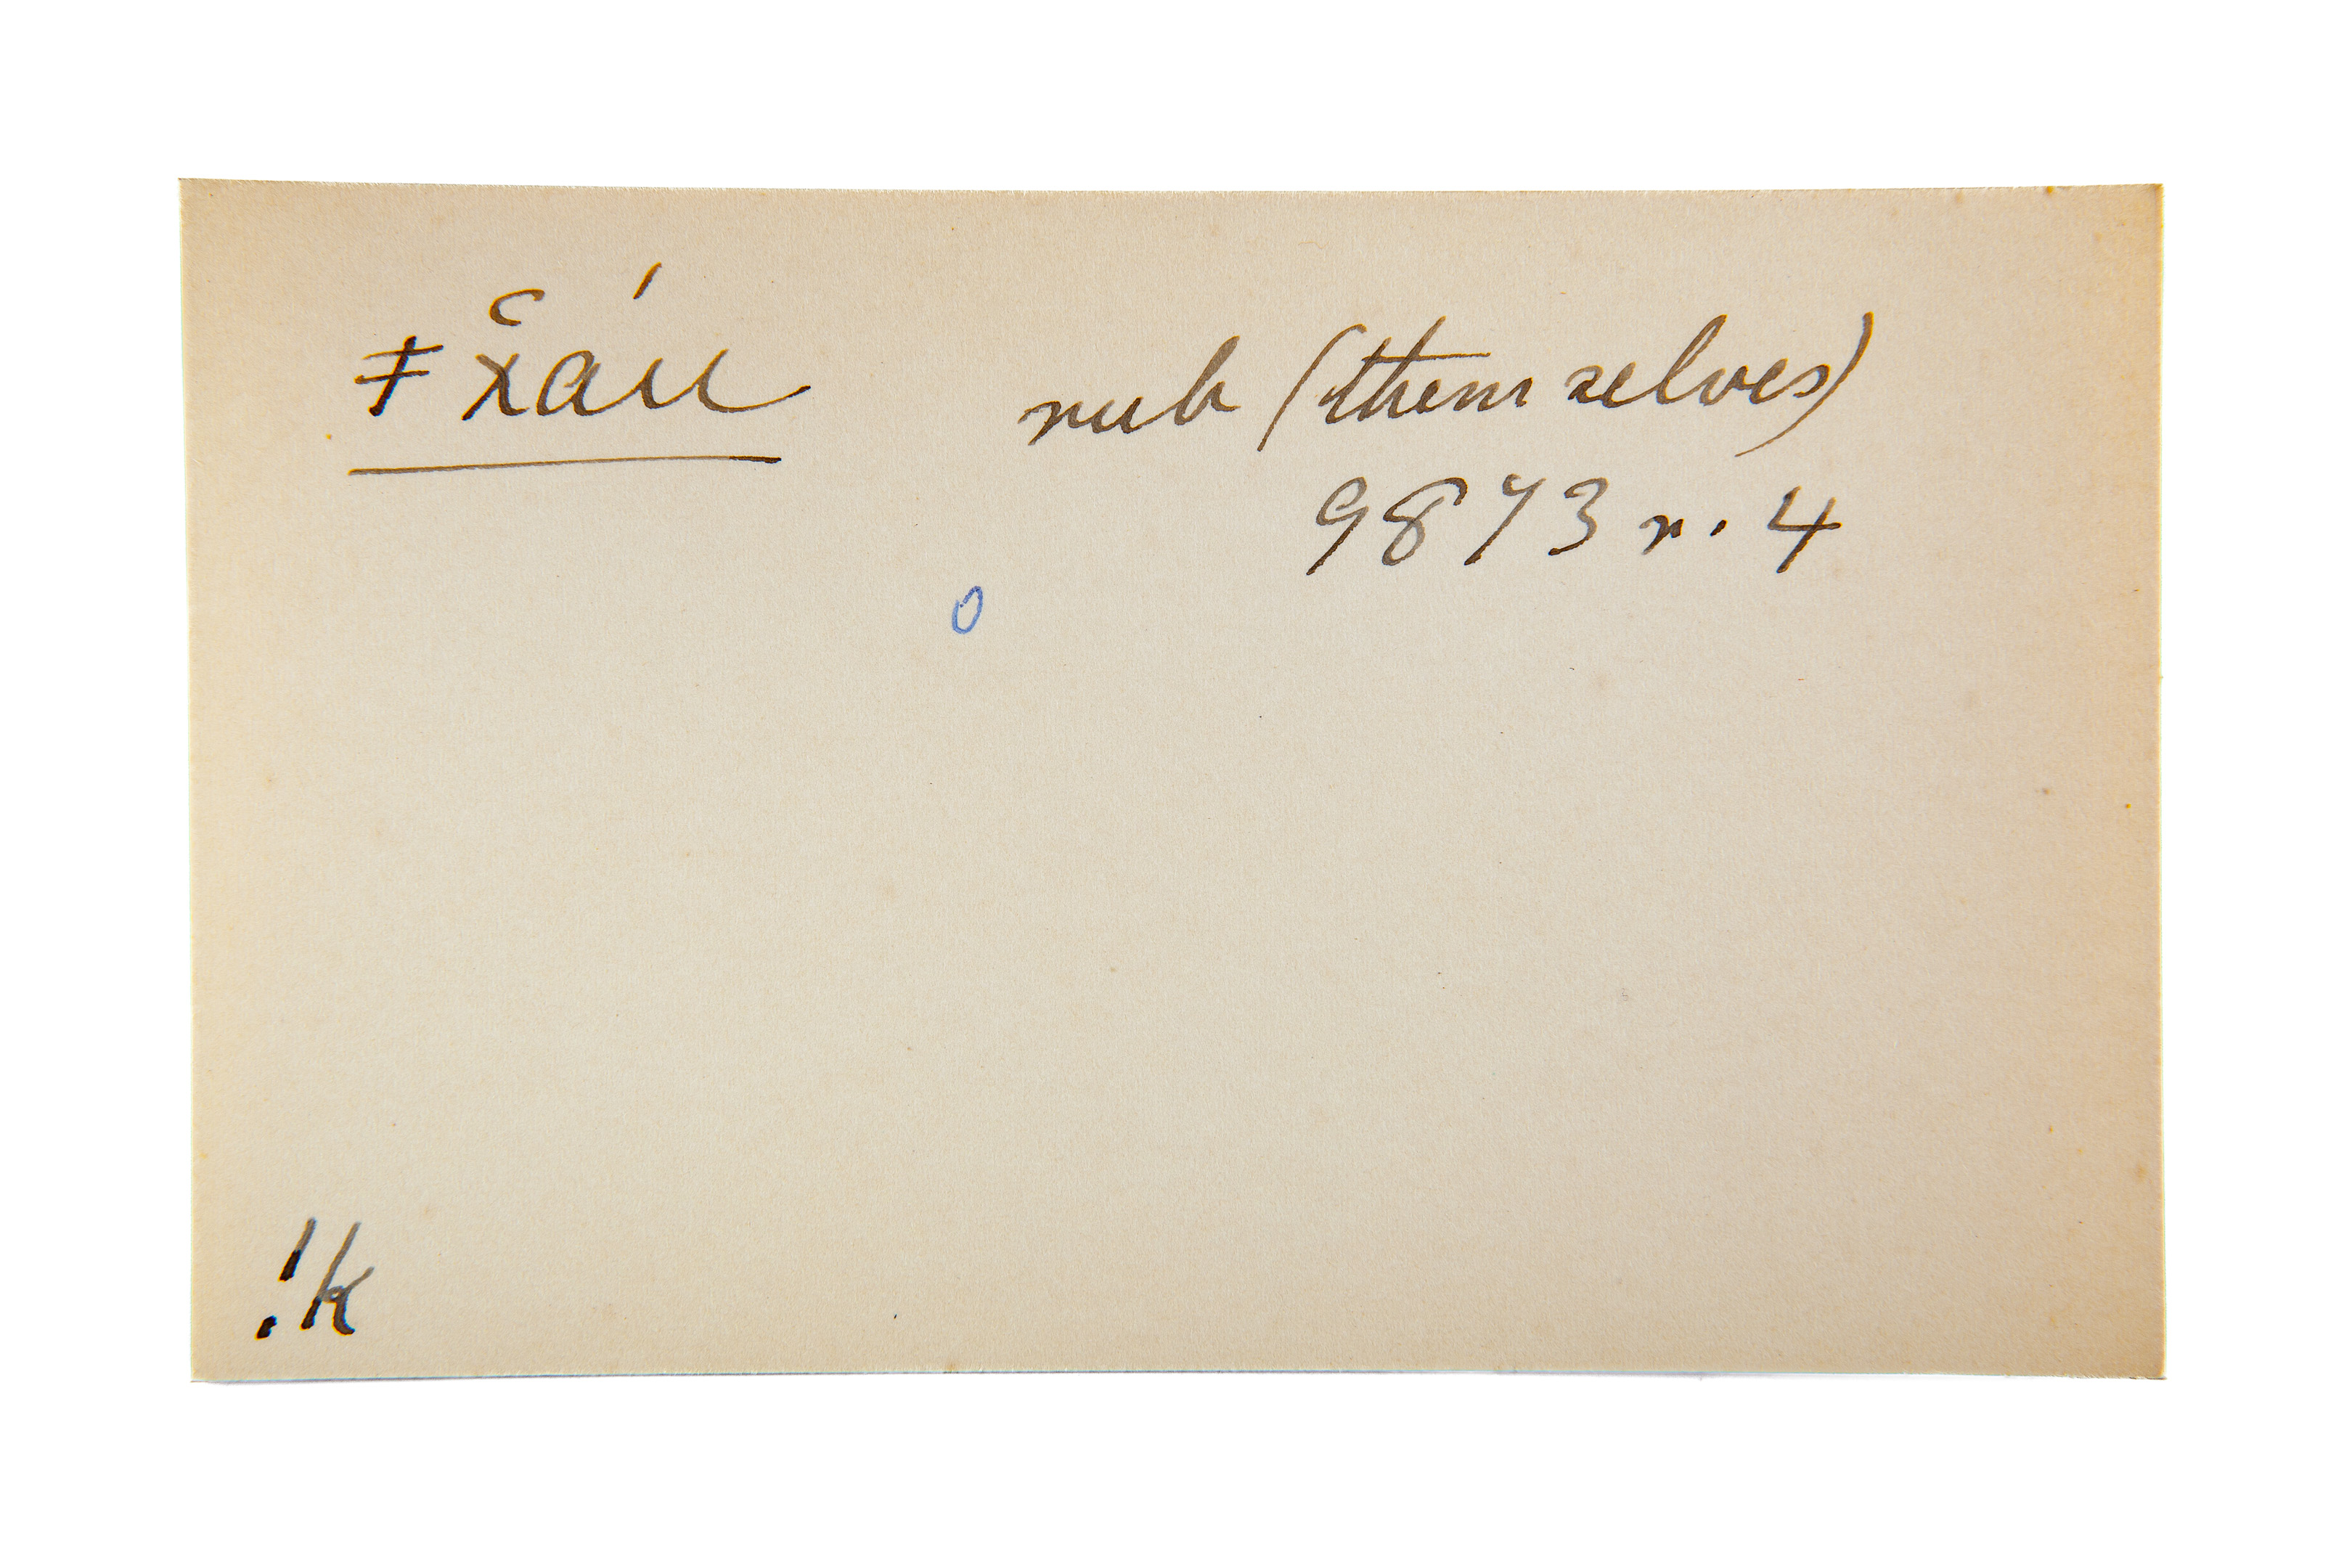 ǂx͑áu rub (themselves)
9873 r. 4
0
!k